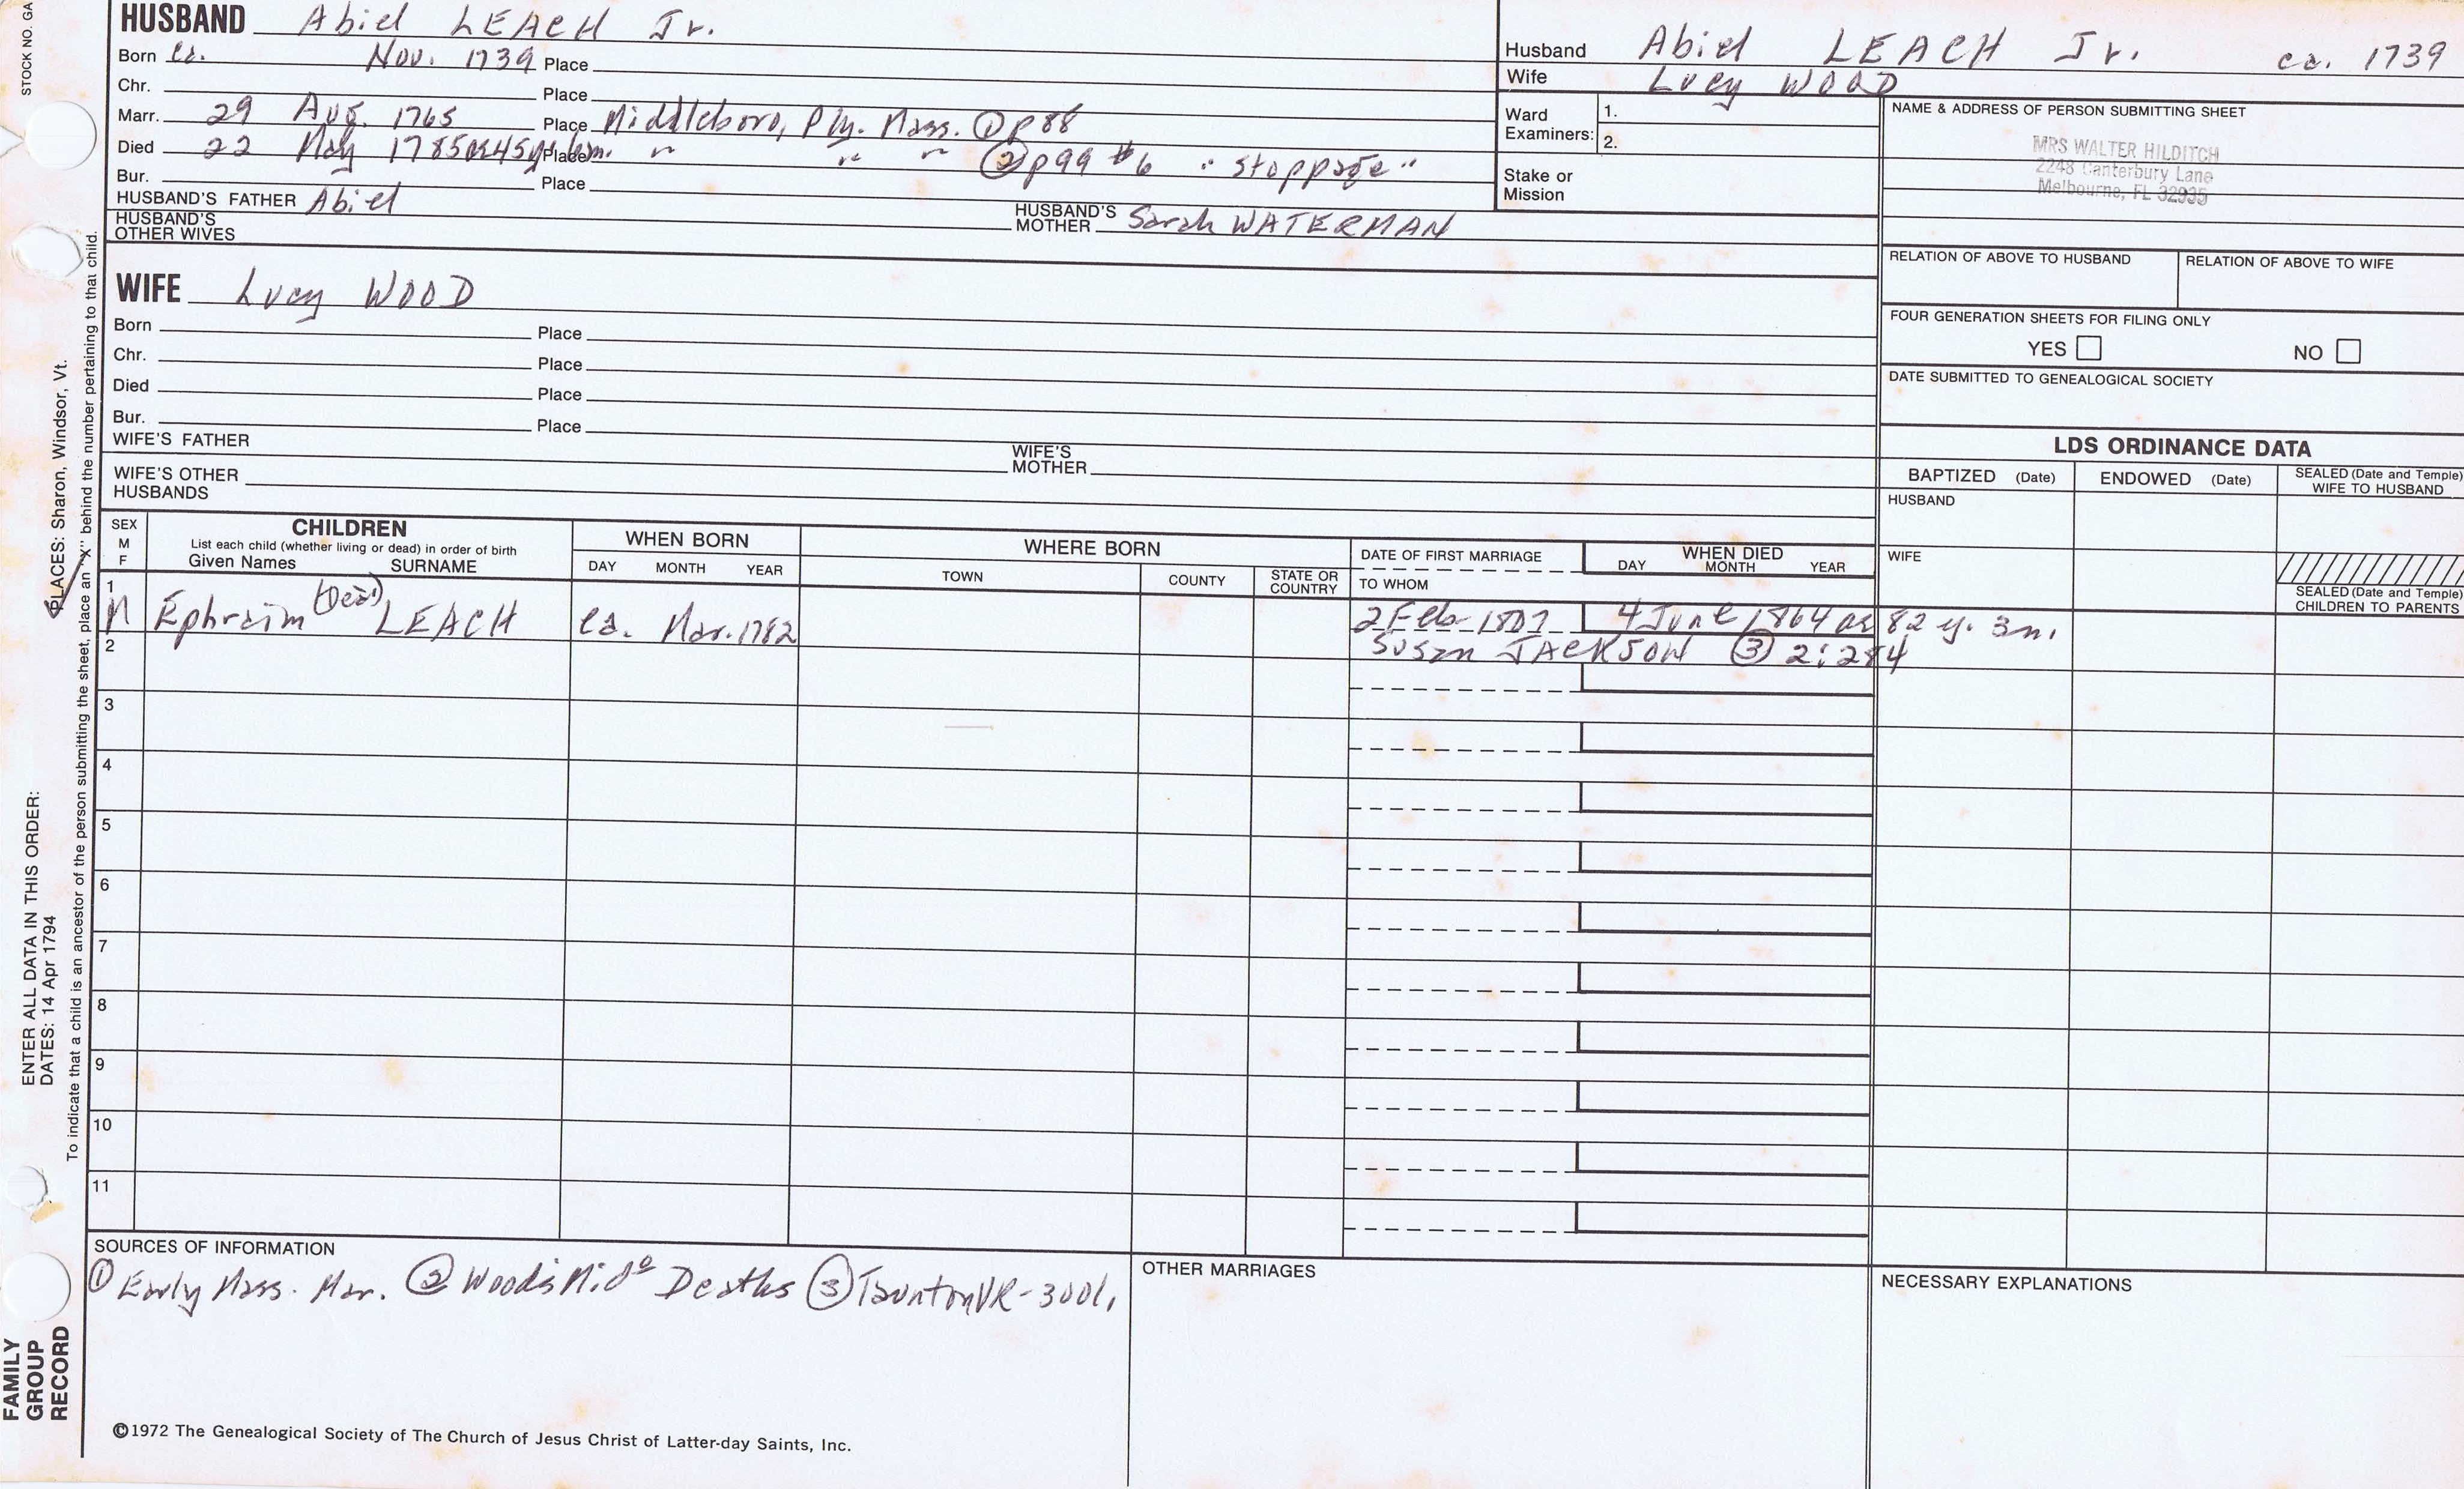 STOCK NO. GA
HUSBAND Abiel LEACH Jr.
Born ca. Nov. 1739 Place
Chr. Place
Marr. 29 Aug. 1765 Place Middleboro, Ply. Mass. ① p 88
Died 22 May 1785 ae 45 y 6m. Place " " " ② p 99 #6 "stoppage"
Bur. Place
HUSBAND'S FATHER Abiel HUSBAND'S MOTHER Sarah WATERMAN
HUSBAND'S OTHER WIVES
Husband Abiel LEACH Jr. ca. 1739
Wife Lucy WOOD
Ward Examiners: 1.
2.
Stake or Mission
NAME & ADDRESS OF PERSON SUBMITTING SHEET
MRS WALTER HILDITCH
2248 Canterbury Lane
Melbourne, FL 32935
RELATION OF ABOVE TO HUSBAND RELATION OF ABOVE TO WIFE
FOUR GENERATION SHEETS FOR FILING ONLY
YES NO
DATE SUBMITTED TO GENEALOGICAL SOCIETY
WIFE Lucy WOOD
Born Place
Chr. Place
Died Place
Bur. Place
WIFE'S FATHER WIFE'S MOTHER
WIFE'S OTHER HUSBANDS
LDS ORDINANCE DATA
BAPTIZED (Date) ENDOWED (Date) SEALED (Date and Temple) WIFE TO HUSBAND
HUSBAND
WIFE
SEALED (Date and Temple) CHILDREN TO PARENTS
SEX M F
CHILDREN
List each child (whether living or dead) in order of birth
Given Names SURNAME
WHEN BORN
DAY MONTH YEAR
WHERE BORN
TOWN COUNTY STATE OR COUNTRY
DATE OF FIRST MARRIAGE
TO WHOM
WHEN DIED
DAY MONTH YEAR
1 M Ephraim LEACH ca. Mar. 1782 2 Feb 1807 4 June 1864 ae 82 y. 3m.
Susan JACKSON ③ 2:284
2
3
4
5
6
7
8
9
10
11
SOURCES OF INFORMATION
① Early Mass. Mar. ② Wood's Mido Deaths ③ Taunton VR-300l,
OTHER MARRIAGES
NECESSARY EXPLANATIONS
©1972 The Genealogical Society of The Church of Jesus Christ of Latter-day Saints, Inc.
FAMILY GROUP RECORD
ENTER ALL DATA IN THIS ORDER:
DATES: 14 Apr 1794
PLACES: Sharon, Windsor, Vt.
To indicate that a child is an ancestor of the person submitting the sheet, place an "X" behind the number pertaining to that child.